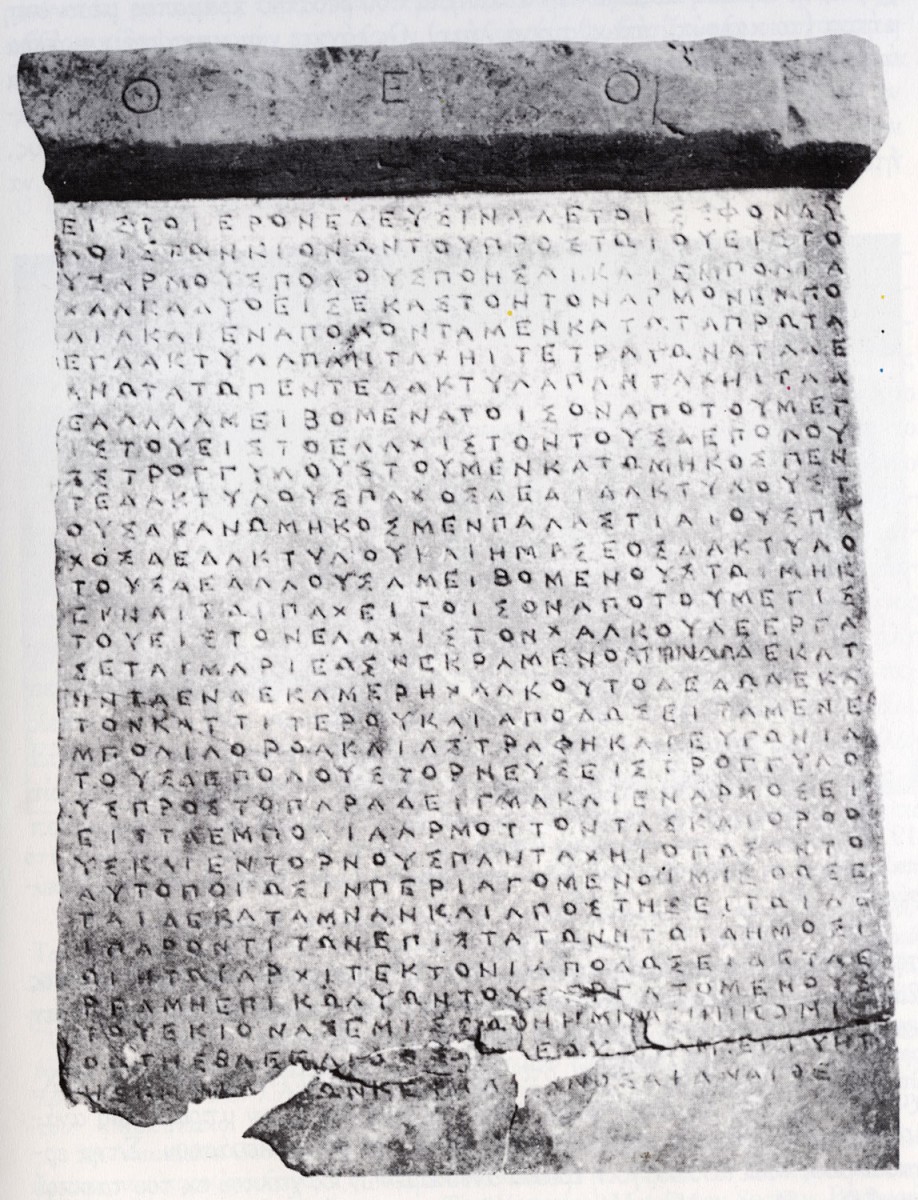 ΘΕΟ
ΕΙΣΤΟΙΕΡΟΝΕΛΕΥΣΙΝΑΔΕΤΟΙΣΣΦΟΝΔΥ
ΛΟΙΣΤΩΝΚΙΟΝΩΝΤΟΥΠΡΟΣΤΩΙΟΥΕΙΣΤΟ
ΥΣΑΡΜΟΥΣΠΟΛΟΥΣΠΟΗΣΑΙΚΑΙΕΜΠΟΛΙΑ
ΧΑΛΚΑΔΥΟΕΙΣΕΚΑΣΤΟΝΤΟΝΑΡΜΟΝΕΝΠΟ
ΛΙΑΚΑΙΕΝΑΠΟΛΟΝΤΑΜΕΝΚΑΤΩΤΑΠΡΩΤΑ
ΕΓΔΑΚΤΥΛΑΠΑΝΤΑΧΗΙΤΕΤΡΑΓΩΝΑΤΑΔΕ
ΑΝΩΤΑΤΩΠΕΝΤΕΔΑΚΤΥΛΑΠΑΝΤΑΧΗΙΤΑΔ
ΕΑΛΛΑΑΜΕΙΒΟΜΕΝΑΤΟΙΣΟΝΑΠΟΤΟΥΜΕΓ
ΙΣΤΟΥΕΙΣΤΟΕΛΑΧΙΣΤΟΝΤΟΥΣΔΕΠΟΛΟΥ
ΣΣΤΡΟΓΓΥΛΟΥΣΤΟΥΜΕΝΚΑΤΩΜΗΚΟΣΠΕΝ
ΤΕΔΑΚΤΥΛΟΥΣΠΑΧΟΣΔΕΔΥΔΑΚΤΥΛΟΥΣΤ
ΟΥΣΔΕΑΝΩΜΗΚΟΣΜΕΝΠΑΛΑΣΤΙΑΙΟΥΣΠΑ
ΧΟΣΔΕΔΑΚΤΥΛΟΥΚΑΙΗΜΙΣΕΟΣΔΑΚΤΥΛΟ
ΤΟΥΣΔΕΑΛΛΟΥΣΑΜΕΙΒΟΜΕΝΟΥΣΤΩΙΜΗΚ
ΕΙΚΑΙΤΩΙΠΑΧΕΙΤΟΙΣΟΝΑΠΟΤΟΥΜΕΓΙΣ
ΤΟΥΕΙΣΤΟΝΕΛΑΧΙΣΤΟΝΧΑΛΚΟΥΔΕΕΡΓΑ
ΣΕΤΑΙΜΑΡΙΕΩΣΚΕΚΡΑΜΕΝΟΥΤΗΝΔΩΔΕΚΑΤ
ΗΝΤΑΕΝΔΕΚΑΜΕΡΗΧΑΛΚΟΥΤΟΔΕΔΩΔΕΚΑ
ΤΟΝΚΑΤΤΙΤΕΡΟΥΚΑΙΑΠΟΔΩΣΕΙΤΑΜΕΝΕ
ΜΠΟΛΙΑΟΡΘΑΚΑΙΑΣΤΡΑΦΗΚΑΙΕΥΓΩΝΙΑ
ΤΟΥΣΔΕΠΟΛΟΥΣΤΟΡΝΕΥΣΕΙΣΤΡΟΓΓΥΛΟ
ΥΣΠΡΟΣΤΟΠΑΡΑΔΕΙΓΜΑΚΑΙΕΝΑΡΜΟΣΕΙ
ΕΙΣΤΑΕΜΠΟΛΙΑΑΡΜΟΤΤΟΝΤΑΣΚΑΙΟΡΘΟ
ΥΣΚΑΙΕΝΤΟΡΝΟΥΣΠΑΝΤΑΧΗΙΟΠΩΣΑΝΤΟ
ΑΥΤΟΠΟΙΩΣΙΝΠΕΡΙΑΓΟΜΕΝΟΙΜΙΣΘΩΣΕ
ΤΑΙΔΕΚΑΤΑΜΝΑΝΚΑΙΑΠΟΣΤΗΣΕΙΤΩΙΑΕ
ΙΠΑΡΟΝΤΙΤΩΝΕΠΙΣΤΑΤΩΝΗΤΩΙΔΗΜΟΣΙ
ΩΙΗΤΩΙΑΡΧΙΤΕΚΤΟΝΙΑΠΟΔΩΣΕΙΔΕΤΑΕ
ΡΓΑΜΗΕΠΙΚΩΛΥΩΝΤΟΥΣΕΡΓΑΖΟΜΕΝΟΥΣ
ΤΟΥΣΚΙΟΝΑΣΕΜΙΣΘΩΘΗ
ΕΓΓΥΗΤ